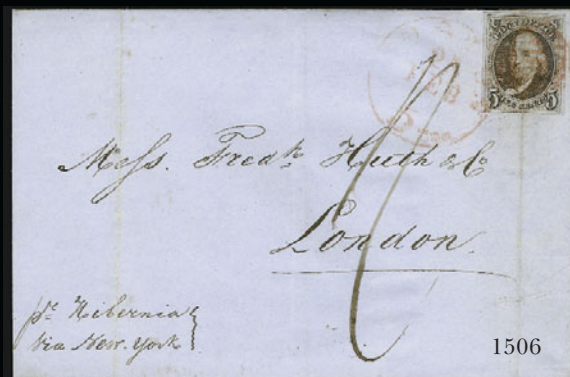 POST OFFICE
5 FIVE CENTS 5
FEB
5
Mess. Fredk. Huth & Co
London.
pr. Hibernia
via New. York
1506